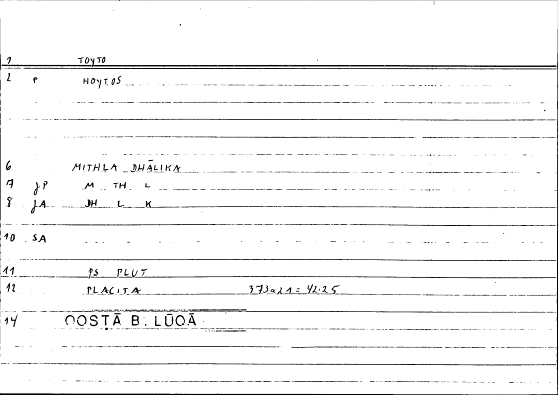 1 TOYTO
2 P HOYTOS
6 MITHLA DHĀLIKA
7 JP M TH L
8 JA DH L K
10 SA
11 PS PLUT
12 PLACITA 373a21 = 42.25
14 QOSṬĀ B. LŪQĀ